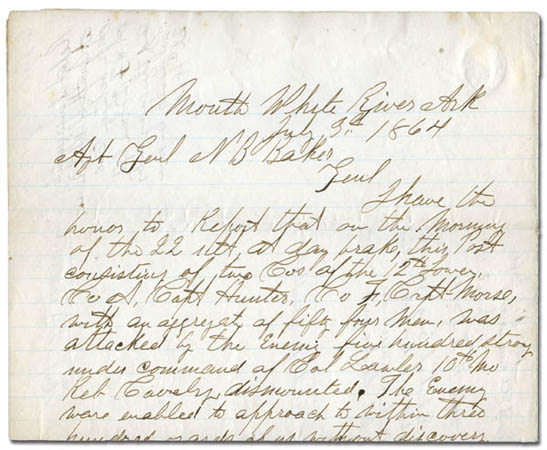 Mouth White River Ark
July 3rd 1864
Ajt Genl N B Baker
Genl
I have the
honor to Report that on the Morning
of the 22 ult, at day brake, this Post
consisting of two Cos of the 12th Iowey,
Co A, Capt Hunter, Co F, Capt Morse,
with an aggregat of fifty four Men, was
attacked by the Enemy five hundred strong
under command of Col Lawler 10th Mo
Reb Cavalry dismounted. The Enemy
ware enabled to approach to within three
hundred yards of us without discovery